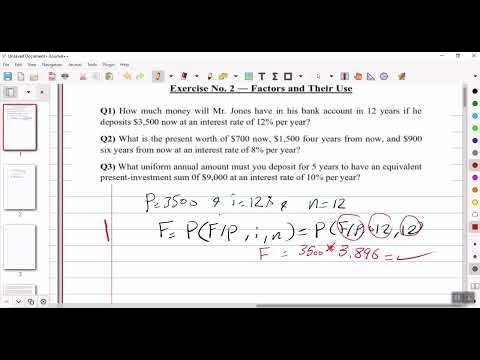 Unsaved Document - Xournal++
File Edit View Navigation Journal Tools Plugin Help
Exercise No. 2 — Factors and Their Use
Q1) How much money will Mr. Jones have in his bank account in 12 years if he
deposits $3,500 now at an interest rate of 12% per year?
Q2) What is the present worth of $700 now, $1,500 four years from now, and $900
six years from now at an interest rate of 8% per year?
Q3) What uniform annual amount must you deposit for 5 years to have an equivalent
present-investment sum 0f $9,000 at an interest rate of 10% per year?
P=3500 , i=12% , n=12
1 F= P(F/P, i, n) = P(F/P, 12, 12)
F = 3500 * 3.896 =